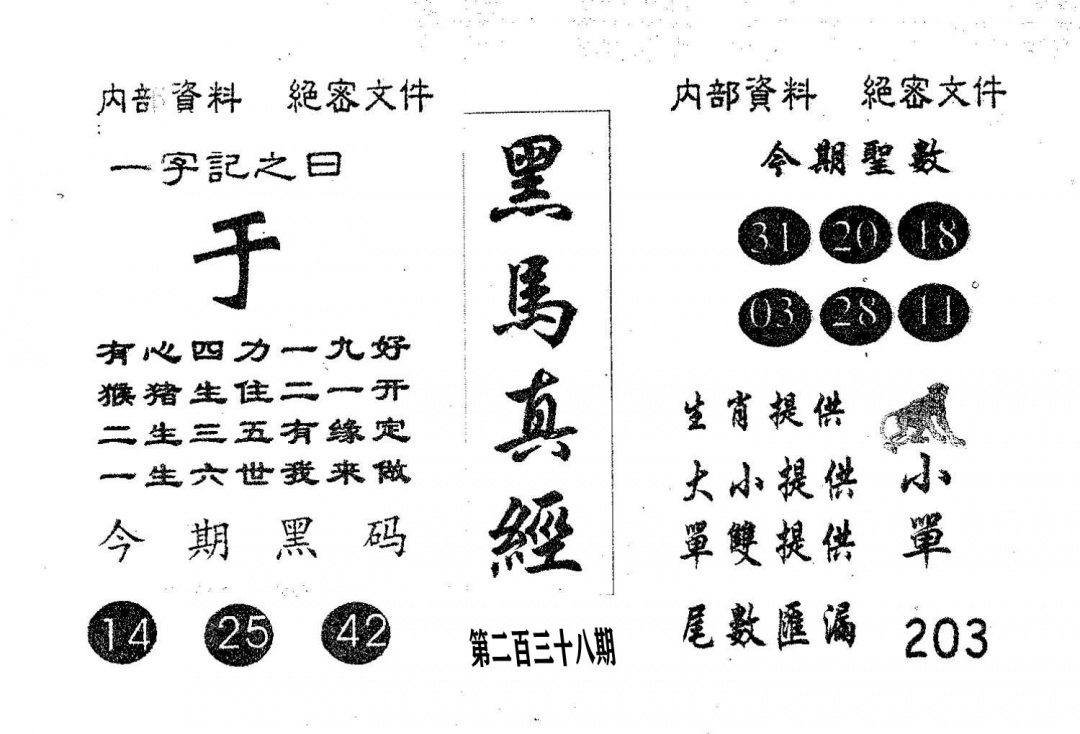 内部資料 絕密文件
一字記之曰
于
有心四力一九好
猴猪生住二一开
二生三五有缘定
一生六世我来做
今期黑码
14 25 42
黑馬真經
第二百三十八期
内部資料 絕密文件
今期聖數
31 20 18
03 28 11
生肖提供
大小提供 小
單雙提供 單
尾數匯漏 203